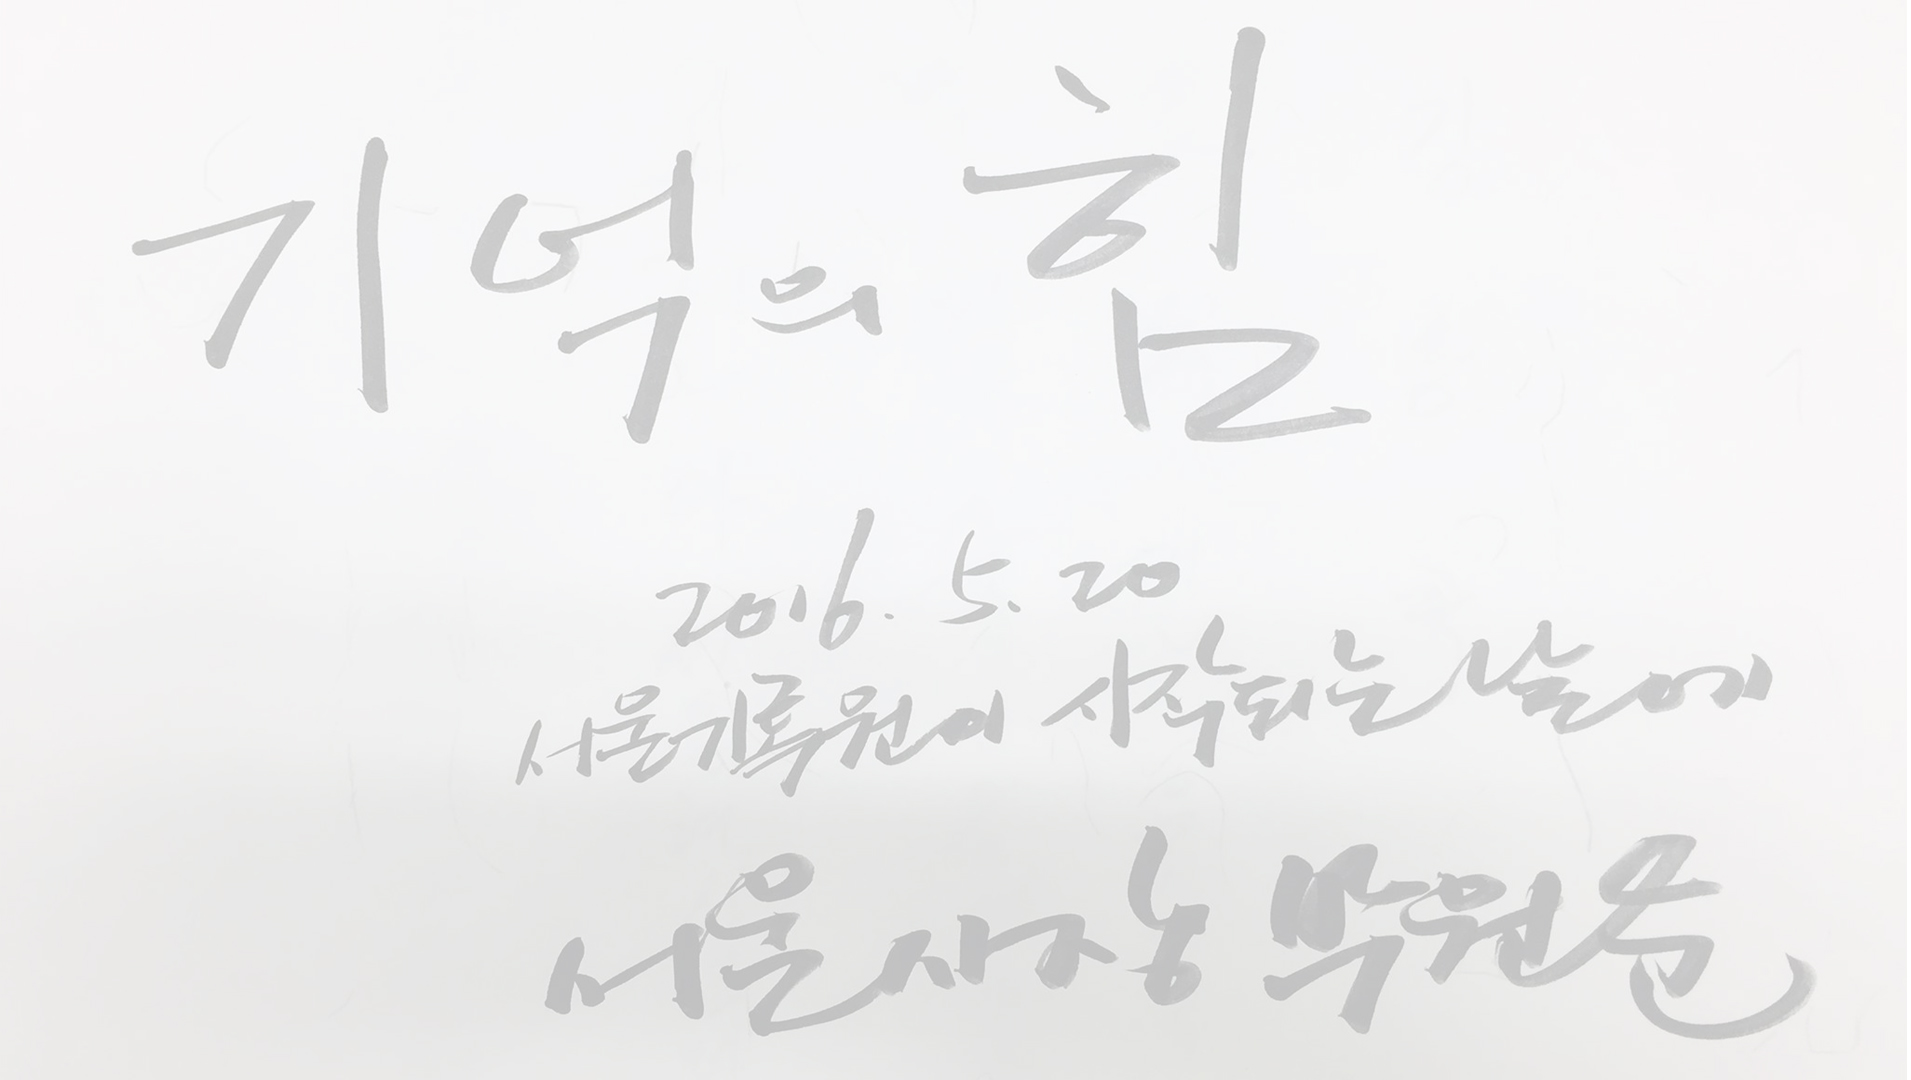 기억의 힘
2016. 5. 20
서울기록원이 시작되는 날에
서울시장 박원순